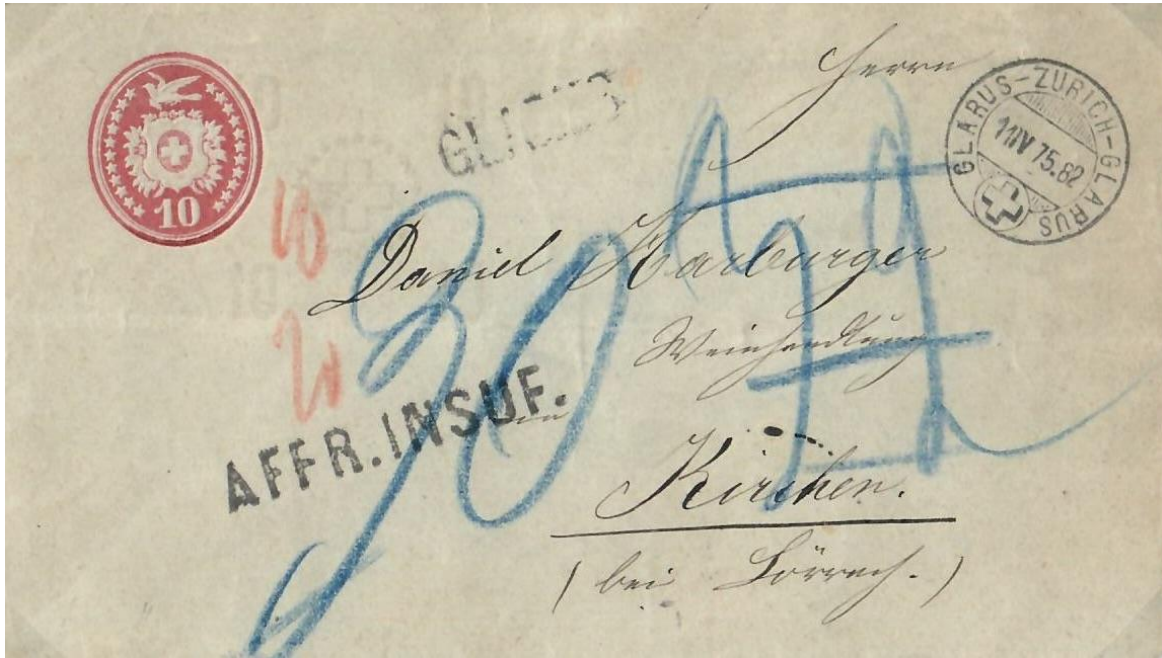 10
Herrn
GLARUS-ZURICH-GLARUS
11 IV 75.82
10
20
30
Daniel Harburger
Weinhandlung
in
AFFR. INSUF.
Kirchen.
(bei Lörrach.)